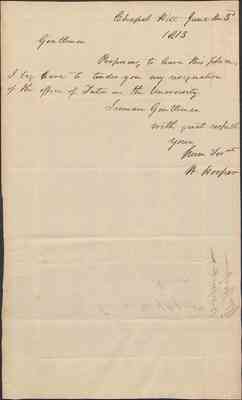 Chapel Hill June the 5th
1813
Gentlemen
Proposing to leave this place,
I beg leave to tender you my resignation
of the office of Tutor in the University
I remain Gentlemen
with great respect
Your
Hum Servt
W. Hooper